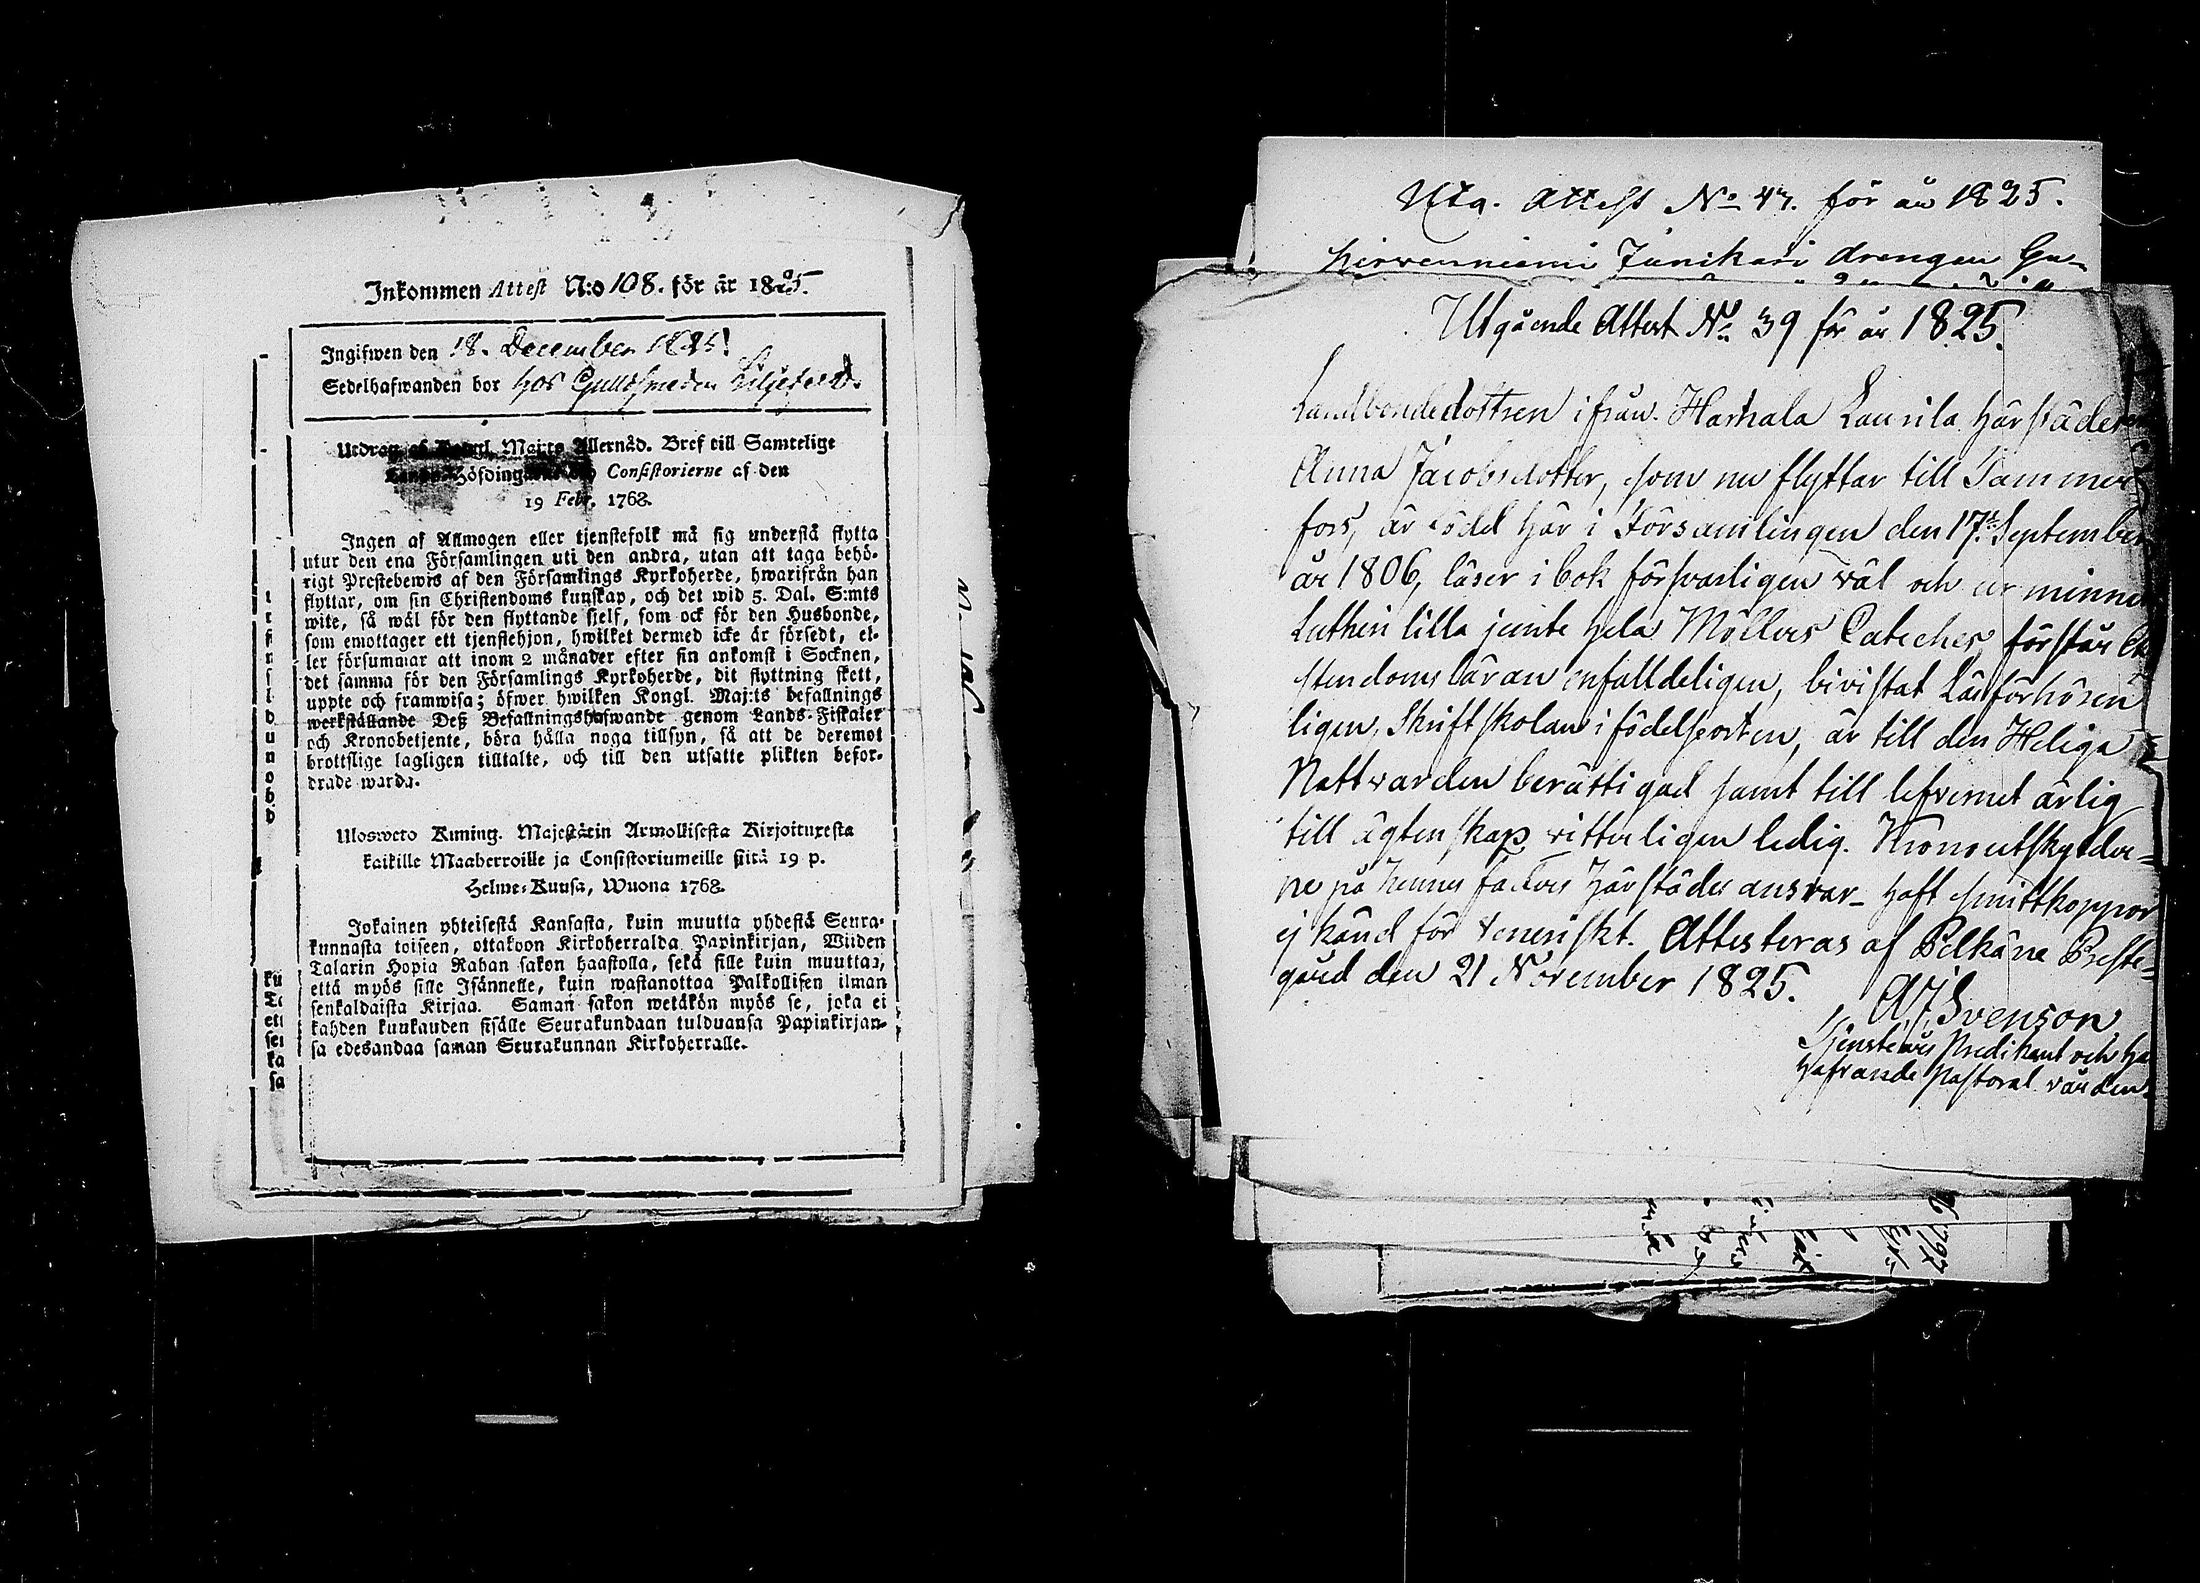 Inkommen Attest N:o 108. för år 1825.
Ingifwen den 18. December 1825!
Sedelhafwanden bor hos Guldsmeden Liljeford.
Utdrag af Kongl. Maj:ts Allernåd. Bref till Samtelige
Lands-Höfdingarne och Consistorierne af den
19 Febr. 1768.
Ingen af Allmogen eller tjenstefolk må sig understå flytta
utur den ena Församlingen uti den andra, utan att taga behö-
rigt Prestebewis af den Församlings Kyrkoherde, hwarifrån han
flyttar, om sin Christendoms kunskap, och det wid 5. Dal. S:mts
wite, så wäl för den flyttande sjelf, som ock för den Husbonde,
som emottager ett tjenstehjon, hwilket dermed icke är försedt, el-
ler försummar att inom 2 månader efter sin ankomst i Socknen,
det samma för den Församlings Kyrkoherde, dit flyttning skett,
uppte och framwisa; öfwer hwilken Kongl. Maj:ts befallnings
werkställande Deß Befallningshafwande genom Lands-Fiskaler
och Kronobetjente, böra hålla noga tillsyn, så att de deremot
brottslige lagligen tilltalte, och till den utsatte plikten befor-
drade warda.
Ulosweto Kuning. Majestätin Armollisesta Kirjoituxesta
kaikille Maaherroille ja Consistoriumeille siitä 19 p.
Helme-Kuusa, Wuona 1768.
Jokainen yhteisestä Kansasta, kuin muutta yhdestä Seura-
kunnasta toiseen, ottakoon Kirkoherralda Papinkirjan, Wiiden
Talarin Hopia Rahan sakon haastolla, sekä sille kuin muuttaa,
että myös sille Isännelle, kuin wastanottaa Palkollisen ilman
senkaldaista Kirjaa. Saman sakon wetäkön myös se, joka ei
kahden kuukauden sisälle Seurakundaan tulduansa Papinkirjan-
sa edesandaa saman Seurakunnan Kirkoherralle.
Utg. Attest No 47. för år 1825.
hirvenniemi Junikari drengen Gu-
Utgående Attest No 39 för år 1825.
Landbondedottren ifrån Harhala Laurila härstädes
Anna Jacobsdotter, som nu flyttar till Tammer-
fors, är född här i Församlingen den 17. September
år 1806, läser i bok försvarligen väl och ur minnet
Lutheri lilla jemte hela Möllers Cateches, förstår
stendoms läran enfalldeligen, bivistat Läsförhören
ligen, Skriftskolan i födelseorten, är till den Heliga
Nattvarden berättigad samt till lefvernet ärlig
till ägtenskap vitterligen ledig. Kronoutskylder-
ne på hennes faders härstädes ansvar- haft smittkoppor
ej känd för veneriskt. Attesteras af Pelkäne Preste-
gård den 21 November 1825.
A. J. Svenson
Tjenstenärs Predikant och
hafvande Pastoral vården.